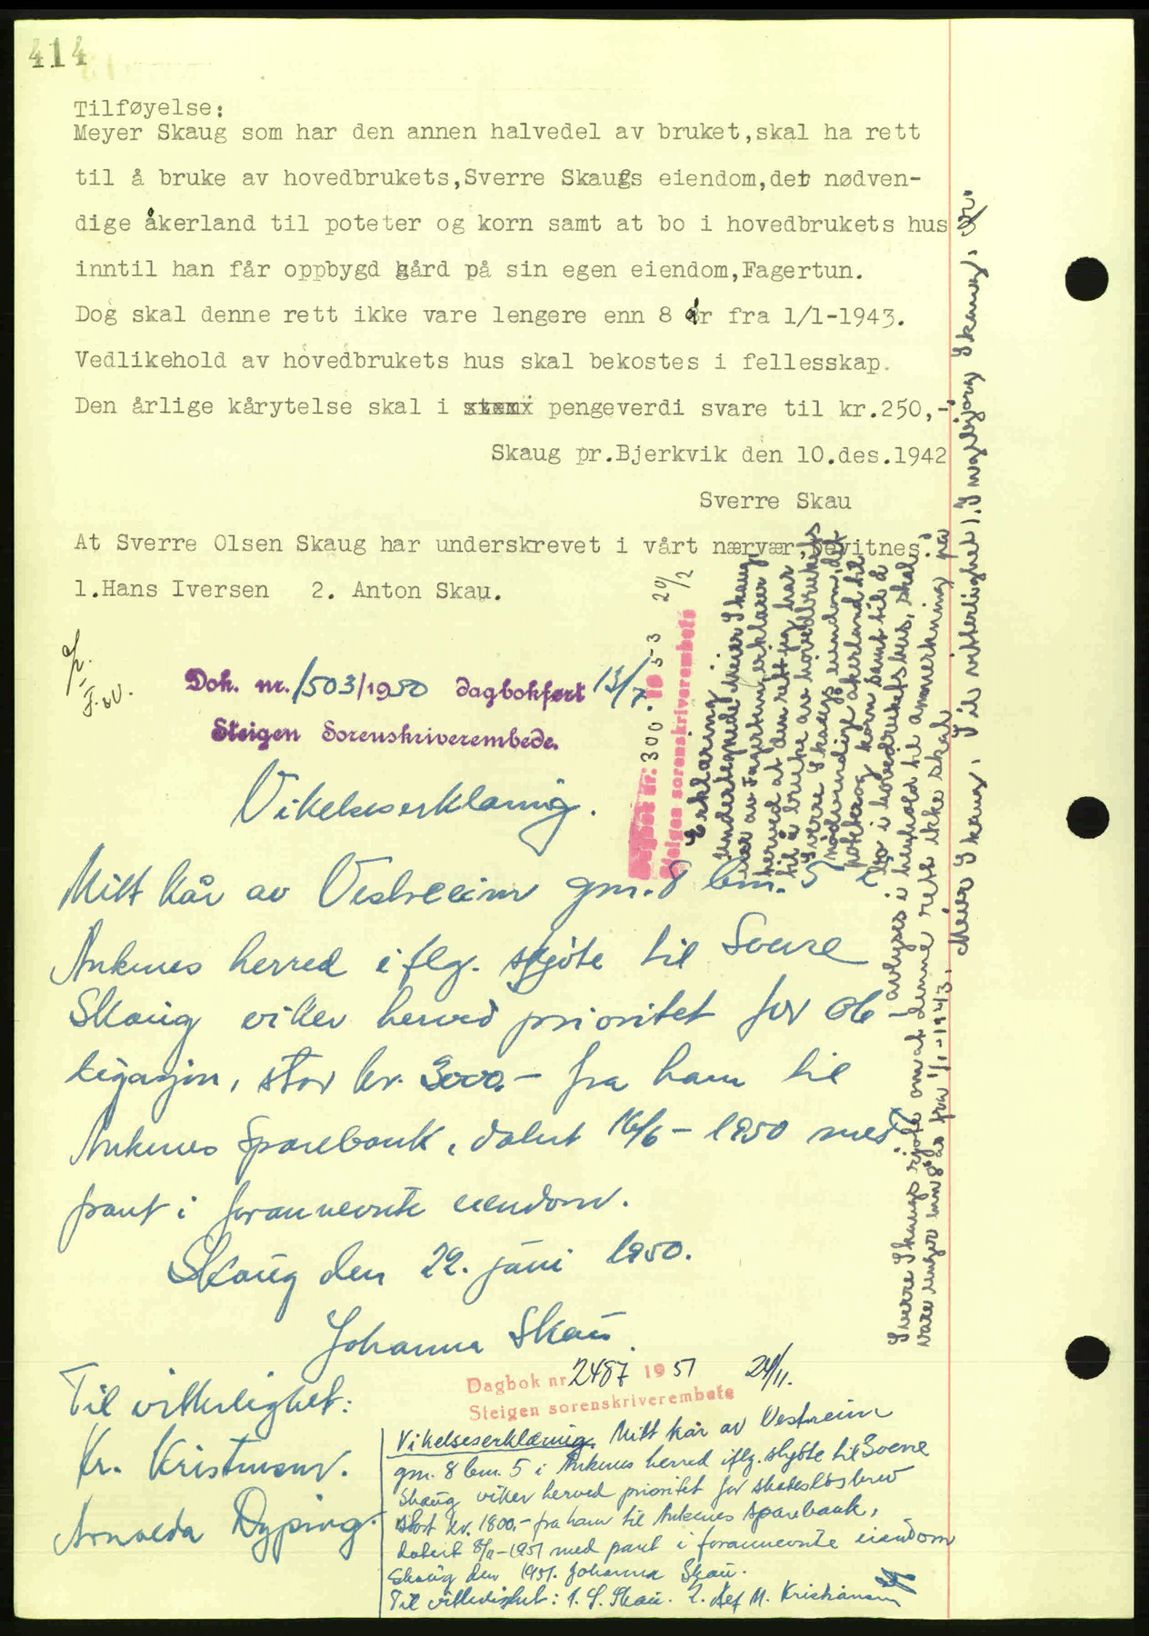 414
Tilføyelse:
Meyer Skaug som har den annen halvedel av bruket,skal ha rett
til å bruke av hovedbrukets,Sverre Skaugs eiendom,det nødven-
dige åkerland til poteter og korn samt at bo i hovedbrukets hus
inntil han får oppbygd gård på sin egen eiendom,Fagertun.
Dog skal denne rett ikke vare lengere enn 8 år fra 1/1-1943.
Vedlikehold av hovedbrukets hus skal bekostes i fellesskap.
Den årlige kårytelse skal i pengeverdi svare til kr.250,-
Skaug pr.Bjerkvik den 10.des.1942
Sverre Skau
At Sverre Olsen Skaug har underskrevet i vårt nærvær bevitnes:
1.Hans Iversen 2. Anton Skau.
Dok. nr. 1503/1950 dagbokført 13/7
Steigen Sorenskriverembede.
Vikelseserklæring.
Mitt kår av Vestreim gnr. 8 bnr. 5 i
Ankenes herred iflg. skjøte til Sverre
Skaug viker herved prioritet for ob-
ligasjon, stor kr. 3000.- fra ham til
Ankenes Sparebank, datert 16/6-1950 med
pant i forannevnte eiendom.
Skaug den 22. juni 1950.
Johanna Skau
Til vitterlighet:
Kr. Kristensen.
Arnolda Dyping.
Dagbok nr. 300. 1953 20/2
Steigen sorenskriverembete
Erklæring
Undertegnede Meier Skaug,
eier av Fagertun, erklærer
herved at den rett jeg har
til å bruke av hovedbrukets
Sverre Skaugs eiendom, det
nødvendige åkerland til
poteter og korn samt til å
bo i hovedbrukets hus, skal
avlyses i henhold til anmerkning på
Sverre Skaugs skjøte om at denne rett ikke skal
vare lenger enn 8 år fra 1/1-1943. Meier Skaug. Til vitterlighet: Ingebjørg Skaug.
Dagbok nr. 2487 1951 24/11.
Steigen sorenskriverembete
Vikelseserklæring. Mitt kår av Vestreim
gnr. 8 bnr. 5 i Ankenes herred iflg. skjøte til Sverre
Skaug viker herved prioritet for skadesløsbrev
stort kr. 1800.- fra ham til Ankenes Sparebank,
datert 8/11-1951 med pant i forannevnte eiendom
Skaug den 1951. Johanna Skau.
Til vitterlighet: 1. S. Skau. 2. M. Kristiansen